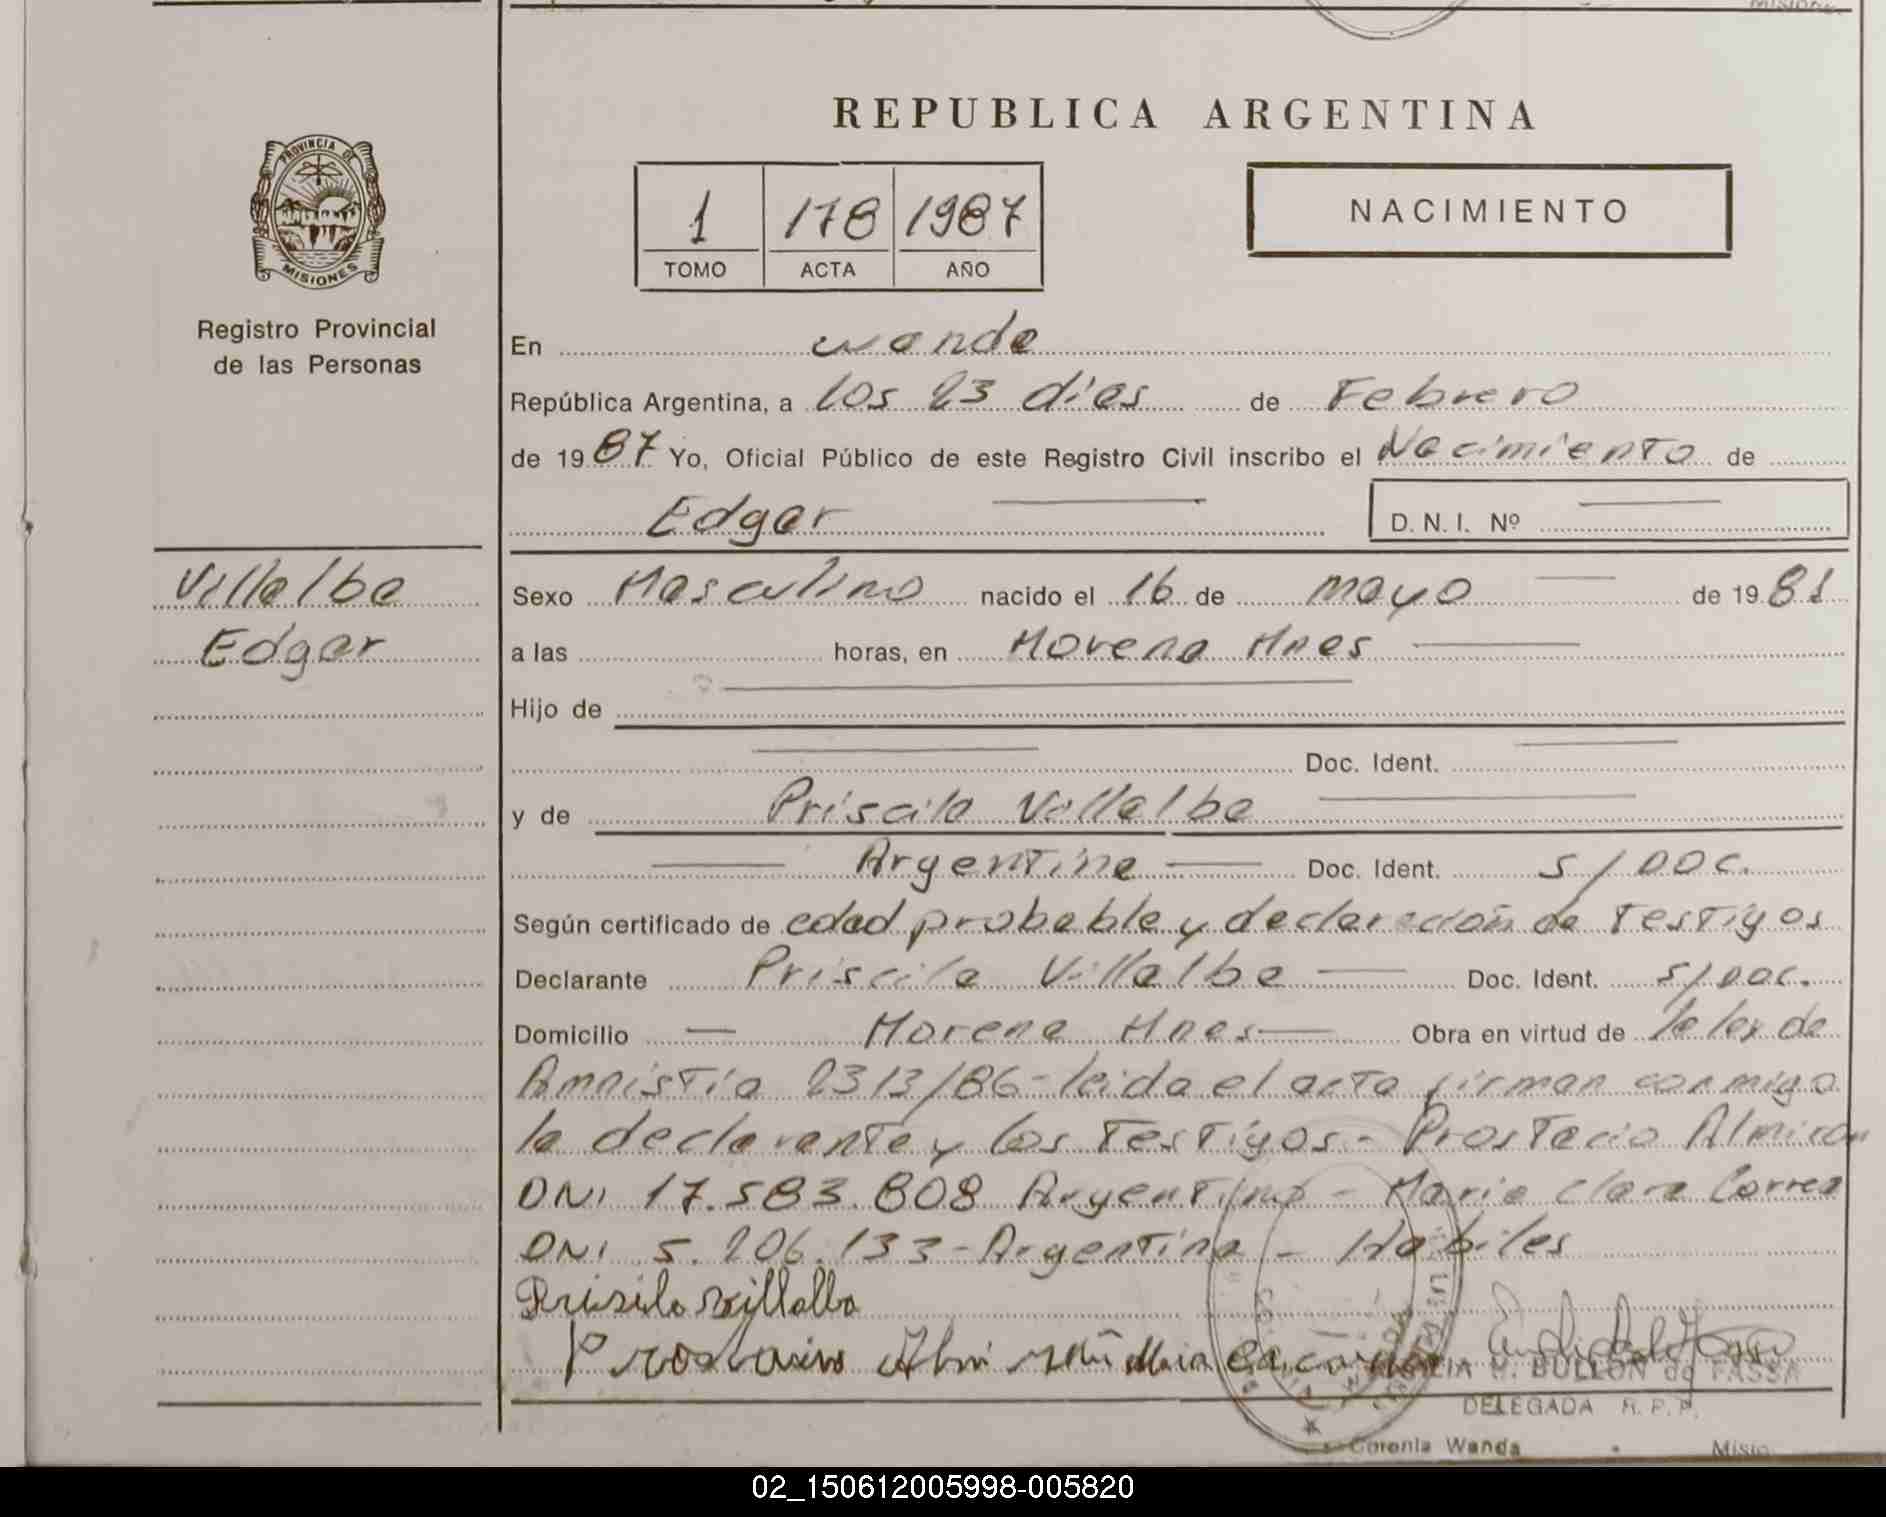 REPUBLICA ARGENTINA
PROVINCIA DE
MISIONES
Registro Provincial
de las Personas
1 178 1987
TOMO ACTA AÑO
NACIMIENTO
En wanda
República Argentina, a los 23 dias de Febrero
de 19 87 Yo, Oficial Público de este Registro Civil inscribo el Nacimiento de
Edgar D. N. I. Nº
Villalba
Edgar
Sexo Masculino nacido el 16 de mayo de 19 81
a las horas, en Morena Mnes
Hijo de
Doc. Ident.
y de Priscila Villalba
Argentina Doc. Ident. s/DOC.
Según certificado de edad probable y declaración de Testigos
Declarante Priscila Villalba Doc. Ident. s/DOC.
Domicilio Morena Mnes Obra en virtud de la ley de
Amnistía 2313/86 - leida el acta firman conmigo
la declarante y los Testigos - Prostacio Almiron
DNI 17.583.808 Argentino - Maria Clara Correa
DNI 5.206.133 - Argentina - Habiles
Prisila Villalba
M. BULLON de FASSA
DELEGADA R. P. P.
Colonia Wanda
02_150612005998-005820